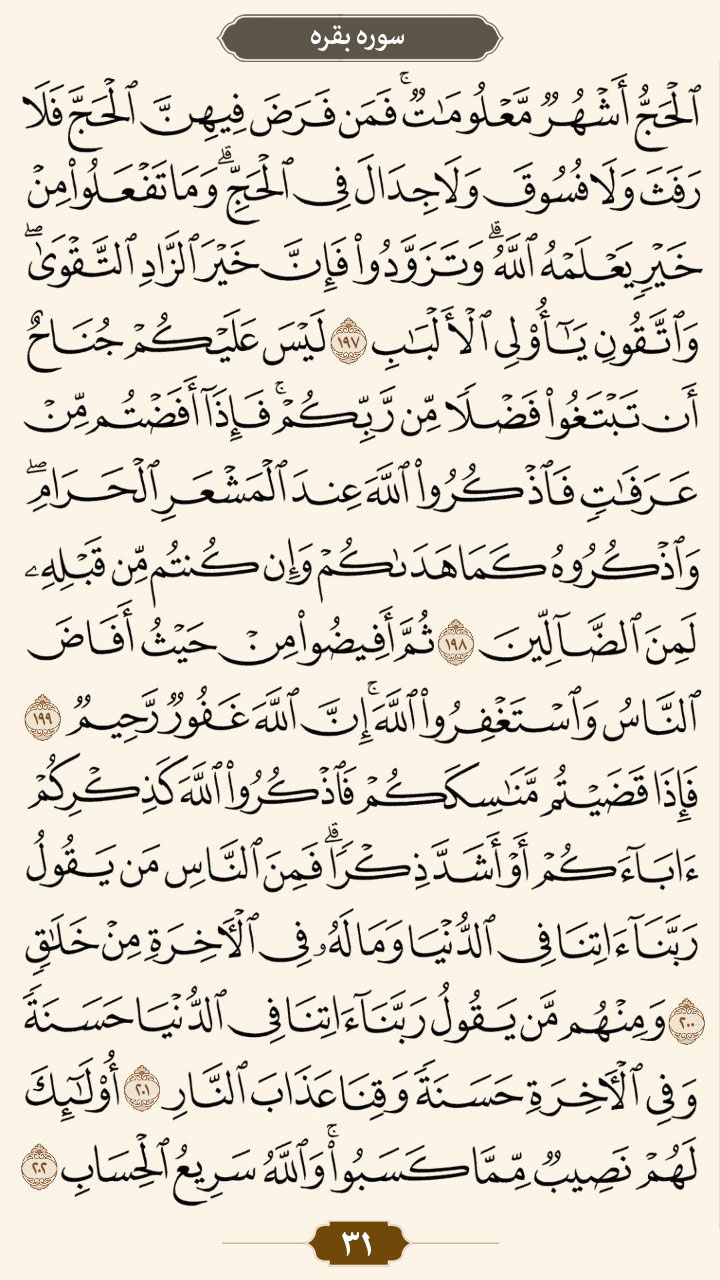 سوره بقره
ٱلۡحَجُّ أَشۡهُرٞ مَّعۡلُومَٰتٞۚ فَمَن فَرَضَ فِيهِنَّ ٱلۡحَجَّ فَلَا
رَفَثَ وَلَا فُسُوقَ وَلَا جِدَالَ فِي ٱلۡحَجِّۗ وَمَا تَفۡعَلُواْ مِنۡ
خَيۡرٖ يَعۡلَمۡهُ ٱللَّهُۗ وَتَزَوَّدُواْ فَإِنَّ خَيۡرَ ٱلزَّادِ ٱلتَّقۡوَىٰۖ
وَٱتَّقُونِ يَٰٓأُوْلِي ٱلۡأَلۡبَٰبِ ١٩٧ لَيۡسَ عَلَيۡكُمۡ جُنَاحٌ
أَن تَبۡتَغُواْ فَضۡلٗا مِّن رَّبِّكُمۡۚ فَإِذَآ أَفَضۡتُم مِّنۡ
عَرَفَٰتٖ فَٱذۡكُرُواْ ٱللَّهَ عِندَ ٱلۡمَشۡعَرِ ٱلۡحَرَامِۖ
وَٱذۡكُرُوهُ كَمَا هَدَىٰكُمۡ وَإِن كُنتُم مِّن قَبۡلِهِۦ
لَمِنَ ٱلضَّآلِّينَ ١٩٨ ثُمَّ أَفِيضُواْ مِنۡ حَيۡثُ أَفَاضَ
ٱلنَّاسُ وَٱسۡتَغۡفِرُواْ ٱللَّهَۚ إِنَّ ٱللَّهَ غَفُورٞ رَّحِيمٞ ١٩٩
فَإِذَا قَضَيۡتُم مَّنَٰسِكَكُمۡ فَٱذۡكُرُواْ ٱللَّهَ كَذِكۡرِكُمۡ
ءَابَآءَكُمۡ أَوۡ أَشَدَّ ذِكۡرٗاۗ فَمِنَ ٱلنَّاسِ مَن يَقُولُ
رَبَّنَآ ءَاتِنَا فِي ٱلدُّنۡيَا وَمَا لَهُۥ فِي ٱلۡأٓخِرَةِ مِنۡ خَلَٰقٖ
٢٠٠ وَمِنۡهُم مَّن يَقُولُ رَبَّنَآ ءَاتِنَا فِي ٱلدُّنۡيَا حَسَنَةٗ
وَفِي ٱلۡأٓخِرَةِ حَسَنَةٗ وَقِنَا عَذَابَ ٱلنَّارِ ٢٠١ أُوْلَٰٓئِكَ
لَهُمۡ نَصِيبٞ مِّمَّا كَسَبُواْۚ وَٱللَّهُ سَرِيعُ ٱلۡحِسَابِ ٢٠٢
٣١